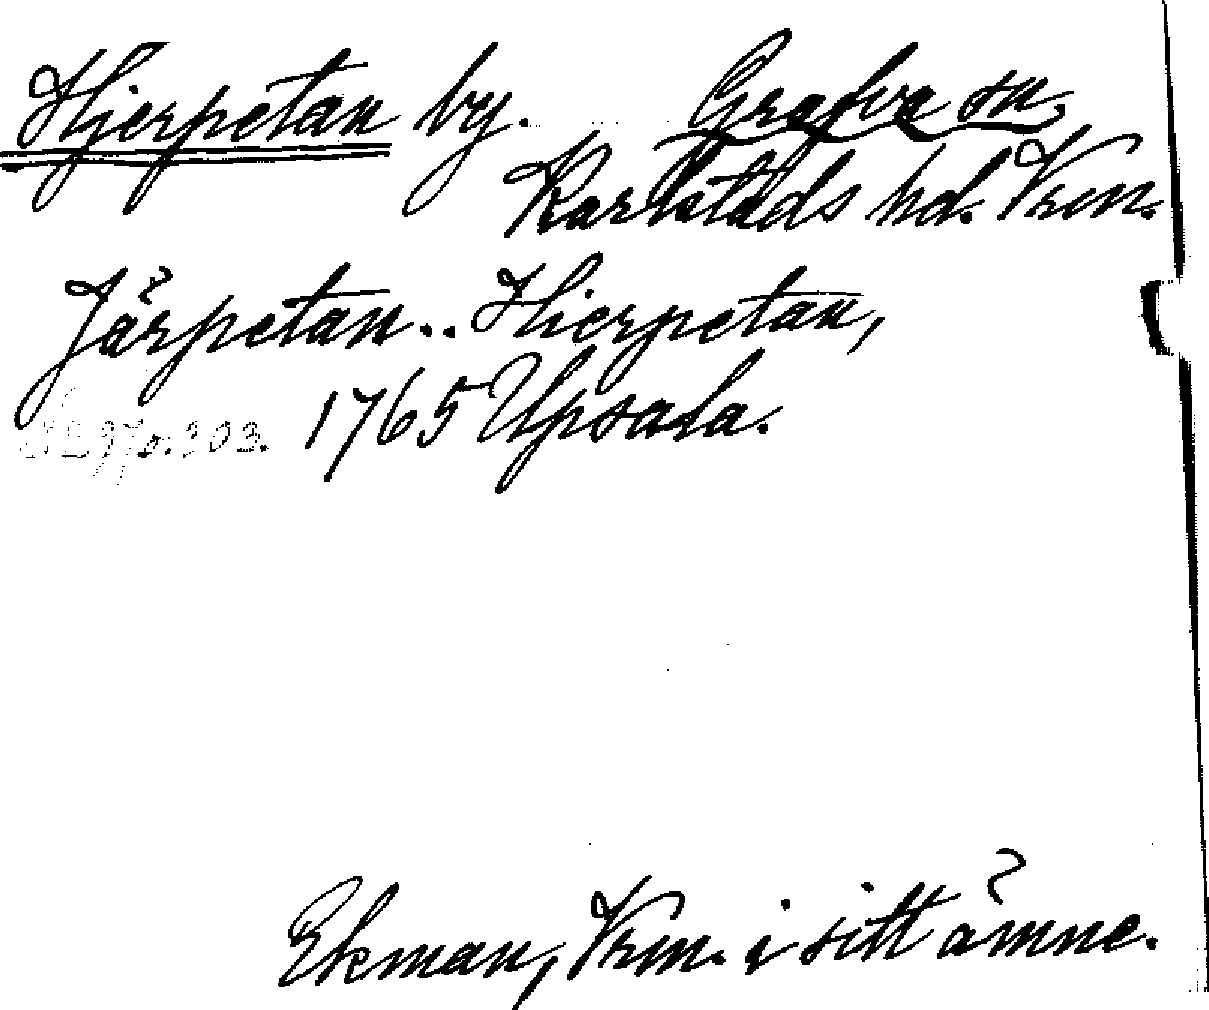 Hjerpetan by. Grafva sn,
Karlstads hd. Vrm.
Järpetan.. Hierpetan,
1765 Upsala.
p. 303.
Ekman, Vrm. i sitt ämne.